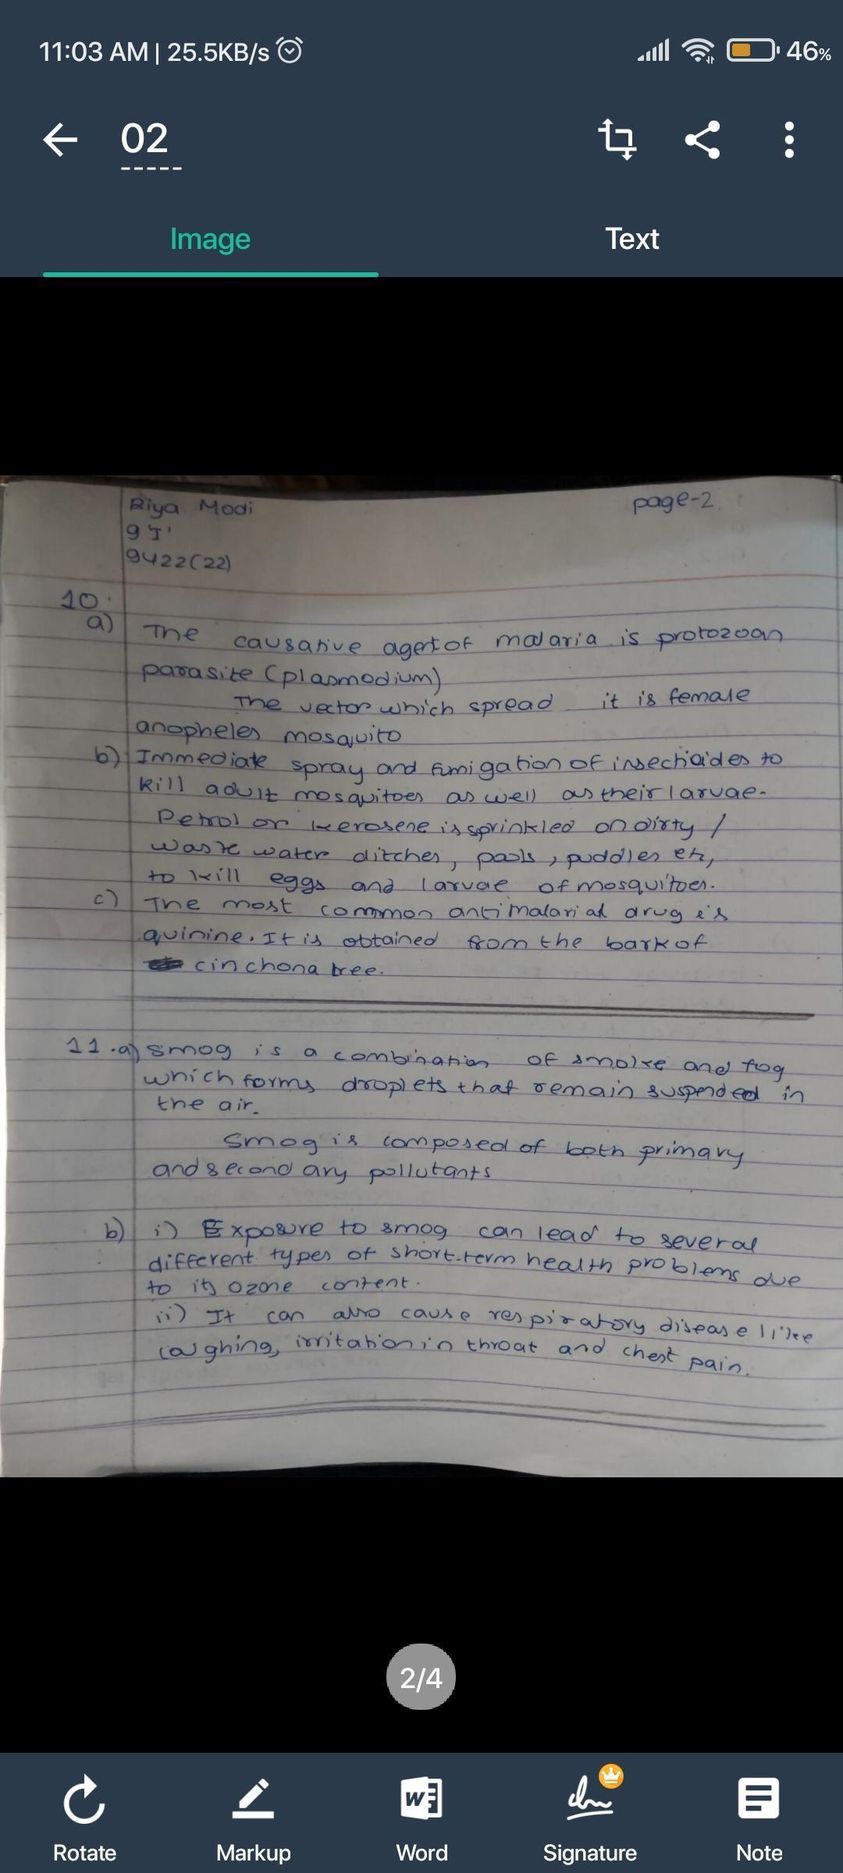 11:03 AM | 25.5KB/s
46%
02
Image
Text
Riya Modi
page-2
9 'I'
9422(22)
10.
a) The causative agent of malaria is protozoan
parasite (plasmodium)
The vector which spread it is female
anopheles mosquito
b) Immediate spray and fumigation of insecticides to
kill adult mosquitoes as well as their larvae.
Petrol or kerosene is sprinkled on dirty /
waste water ditches, pools, puddles etc,
to kill eggs and larvae of mosquitoes.
c) The most common antimalarial drug is
quinine. It is obtained from the bark of
cinchona tree.
11.a) Smog is a combination of smoke and fog
which forms droplets that remain suspended in
the air.
Smog is composed of both primary
and secondary pollutants
b) i) Exposure to smog can lead to several
different types of short-term health problems due
to its ozone content.
ii) It can also cause respiratory disease like
coughing, irritation in throat and chest pain.
2/4
Rotate
Markup
Word
Signature
Note